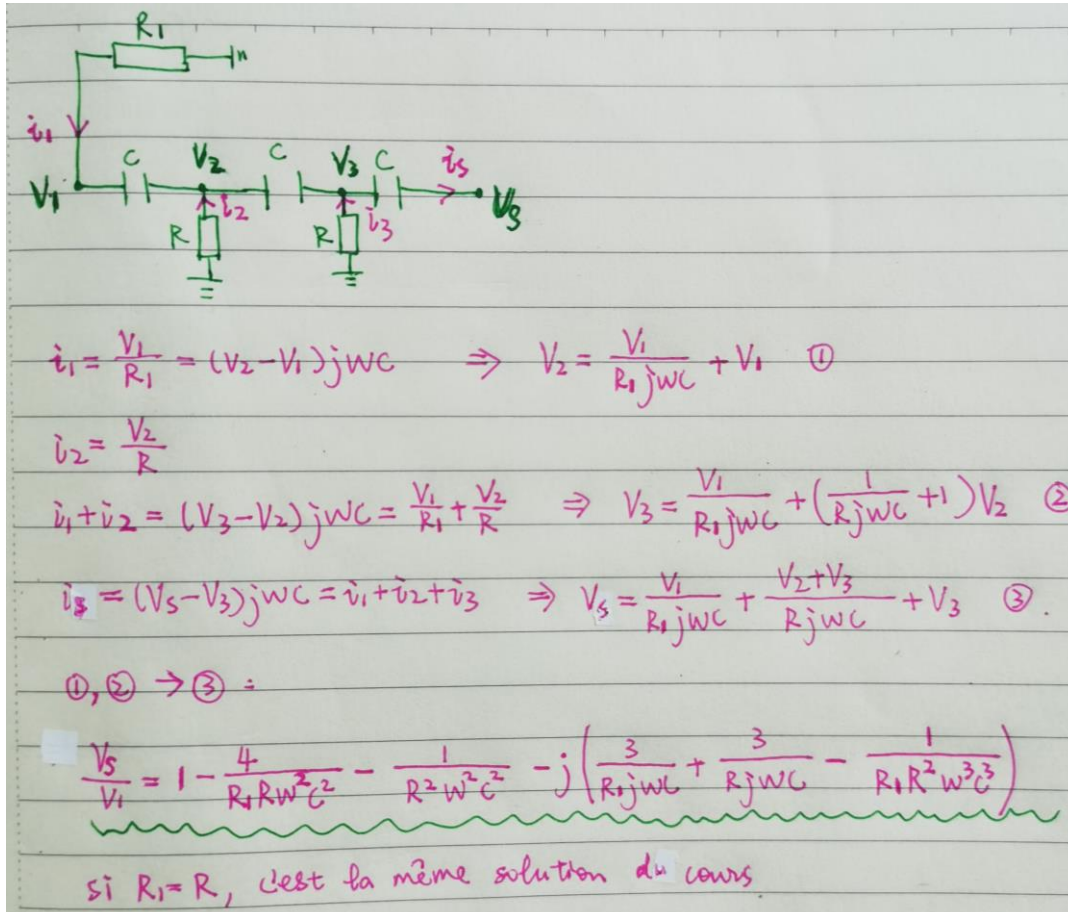 R1
n
i1
C V2 C V3 C is
V1 i2 i3 Vs
R R
i1 = V1/R1 = (V2-V1)jwc ⇒ V2 = V1/(R1jwc) + V1 ①
i2 = V2/R
i1+i2 = (V3-V2)jwc = V1/R1 + V2/R ⇒ V3 = V1/(R1jwc) + (1/(Rjwc) +1)V2 ②
is = (Vs-V3)jwc = i1+i2+i3 ⇒ Vs = V1/(R1jwc) + (V2+V3)/(Rjwc) + V3 ③.
①,② → ③ :
Vs/V1 = 1 - 4/(R1Rw²c²) - 1/(R²w²c²) - j(3/(R1jwc) + 3/(Rjwc) - 1/(R1R²w³c³))
si R1=R, c'est la même solution du cours